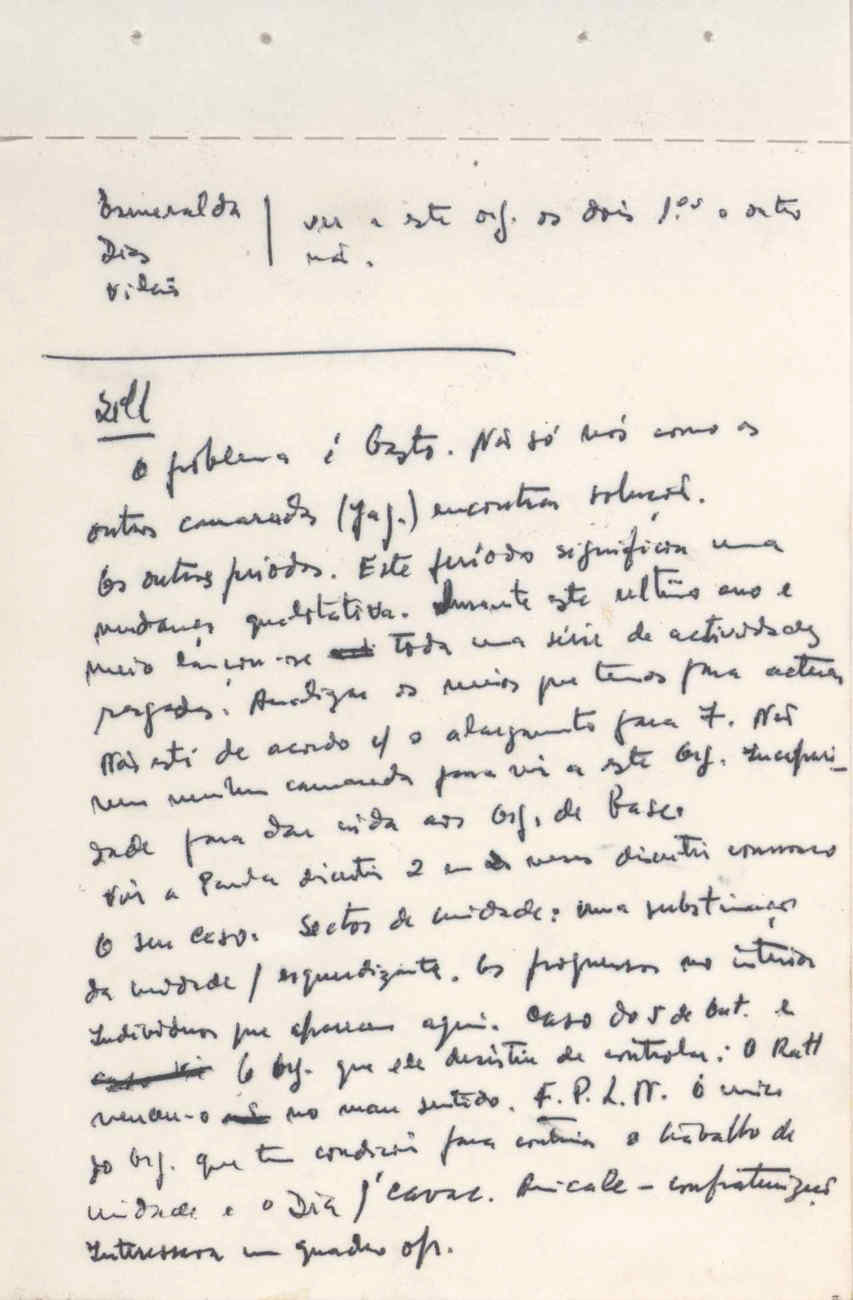 Esmeralda
Dias
Vilas
vir a este org. os dois 1.ºs o outro
não.
O problema é vasto. Não só nós como os
outros camaradas (Jag.) encontrar solução.
Os outros períodos. Este período significou uma
mudança qualitativa. Durante este último ano e
meio lançou-se toda uma série de actividades
rasgadas. Analizar os meios que temos para actuar
Não está de acordo c/ o alargamento para 7. Não
vem nenhum camarada para vir a este Org. Incapaci-
dade para dar vida aos Org. de Base.
Vir a discutir 2 em 2 meses discutir connosco
O seu caso. Sector de unidade: uma substimação
da unidade / esquerdizante. Os progressos no interior
Indivíduos que aparecem aqui. Caso do 5 de Out. e
O Org. que ele desistiu de controlar: O
no mau sentido. F.P.L.N. O único
do Org. que tem condições para continuar o trabalho de
unidade é o Dia Amicale - confraternização
Interessava um quadro op.